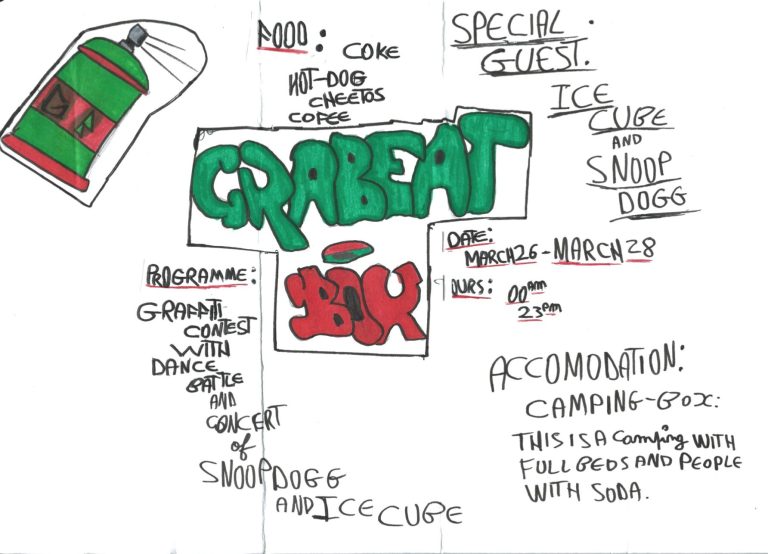 FOOD:
COKE
HOT-DOG
CHEETOS
COFEE
SPECIAL
GUEST.
ICE
CUBE
AND
SNOOP
DOGG
GRABEAT
-
BOX
DATE:
MARCH26-MARCH28
OURS:
00am
23pm
PROGRAMME:
GRAFFITI
CONTEST
WITH
DANCE
BATTLE
AND
CONCERT
of
SNOOP DOGG
AND ICE CUBE
ACCOMODATION:
CAMPING-BOX:
THIS IS A Camping WITH
FULL BEDS AND PEOPLE
WITH SODA.